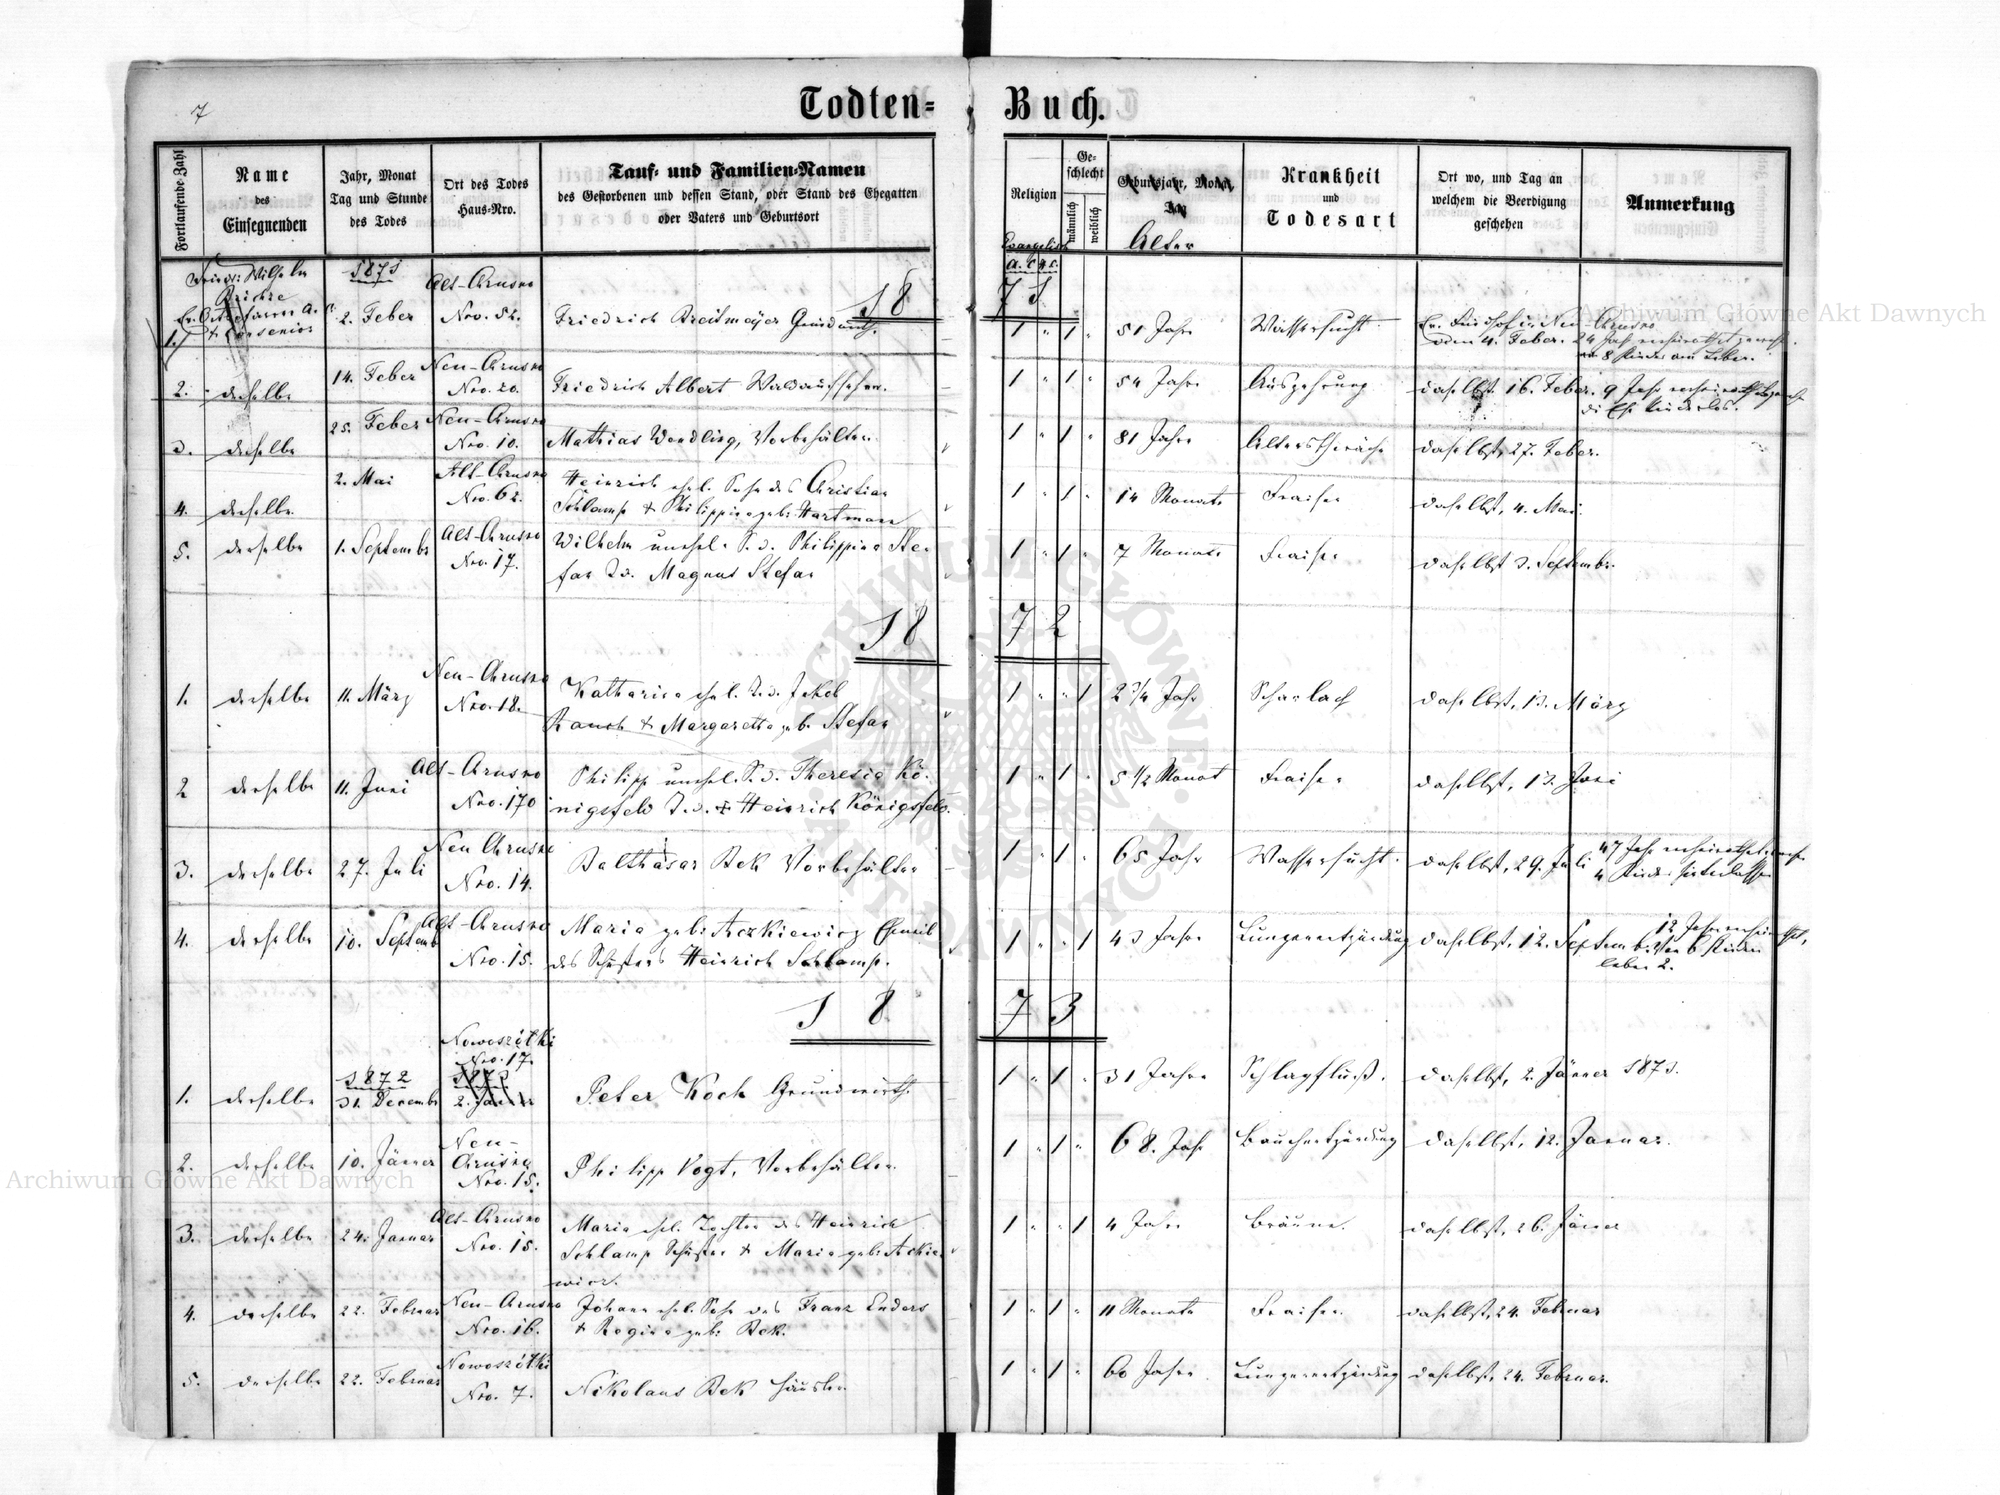 7
Todten-Buch.
Fortlaufende Zahl
Name
des
Einsegnenden
Jahr, Monat
Tag und Stunde
des Todes
Ort des Todes
Haus-Nro.
Tauf- und Familien-Namen
des Gestorbenen und dessen Stand, oder Stand des Ehegatten
oder Vaters und Geburtsort
Religion
Ge-
schlecht
männlich
weiblich
Geburtsjahr, Monat
Tag
Alter
Krankheit
und
Todesart
Ort wo, und Tag an
welchem die Beerdigung
geschehen
Anmerkung
Evangelisch
A. C.
Wilhelm
1871
Alt-Chrusno
18 71
1. 2. Feber Nro. 52. Friedrich Breitmayer Grundwirth. 1 " 1 " 51 Jahr Wassersucht. Ev. Friedhof in Neu-Chrusno
den 4. Feber. 24 Jahr verheirathet gewesen.
8 Kinder am Leben.
2. derselbe 14. Feber Neu-Chrusno
Nro. 20. Friedrich Albert Waldaufseher. 1 " 1 " 54 Jahr Auszehrung daselbst 16. Feber. 9 Jahr verheirathet gewesen
die Ehe kinderlos.
3. derselbe 25. Feber Neu-Chrusno
Nro. 10. Mathias Wendling, Vorbehälter. 1 " 1 " 81 Jahr Altersschwäche daselbst, 27. Feber.
4. derselbe. 2. Mai Alt-Chrusno
Nro. 62. Heinrich ehel. Sohn des Christian
Schlamp & Philippina geb. Hartmann 1 " 1 " 14 Monate Fraisen daselbst, 4. Mai.
5. derselbe 1. Septembr Alt-Chrusno
Nro. 17. Wilhelm unehel. S. d. Philippina Ste-
fan T. d. Magnus Stefan 1 " 1 " 7 Monate Fraisen daselbst 3. Septembr.
18 72
1. derselbe 11. März Neu-Chrusno
Nro. 18. Katharina ehel. T. d. Jakob
Rauch & Margaretha geb. Stefan 1 " " 1 2 3/4 Jahr Scharlach daselbst, 13. März
2 derselbe 11. Juni Alt-Chrusno
Nro. 170 Philipp unehel. S. d. Theresia Kö-
nigsfeld T. d. Heinrich Königsfeld. 1 " 1 " 5 1/2 Monat Fraisen daselbst, 13. Juni
3. derselbe 27. Juli Neu Chrusno
Nro. 14. Balthasar Bek Vorbehälter 1 " 1 " 65 Jahr Wassersucht. daselbst, 29. Juli 47 Jahr verheirathet gewesen
4 Kinder hinterlassen
4. derselbe 10. Septemb Alt-Chrusno
Nro. 15. Maria geb. Aczkiewicz Eheweib
des Schusters Heinrich Schlamp. 1 " " 1 43 Jahr Lungenentzündung daselbst, 12. Septemb. 12 Jahr verheirathet,
Von 6 Kindern
leben 2.
18 73
1. derselbe 1872
31. Decembr Nowosiółki
Nro. 17.
1873
2. Jänner Peter Koch Grundwirth. 1 " 1 " 31 Jahre Schlagfluß. daselbst, 2. Jänner 1873.
2. derselbe 10. Jänner Neu-
Chrusno
Nro. 15. Philipp Vogt, Vorbehälter. 1 " 1 " 68. Jahr Bauchentzündung daselbst, 12. Januar.
3. derselbe 24. Januar Alt-Chrusno
Nro. 15. Maria ehel. Tochter des Heinrich
Schlamp Schuster & Maria geb. Ackie-
wicz. 1 " " 1 4 Jahr Bräune. daselbst, 26. Jänner
4. derselbe 22. Februar Neu-Chrusno
Nro. 16. Johann ehel. Sohn des Franz Enders
& Regina geb. Bek. 1 " 1 " 11 Monate Fraisen daselbst, 24. Februar
5. derselbe 22. Februar Nowosiółki
Nro. 7. Nikolaus Bek Häusler 1 " 1 " 60 Jahre Lungenentzündung daselbst, 24. Februar.
Archiwum Główne Akt Dawnych
Archiwum Główne Akt Dawnych
ARCHIWUM GŁÓWNE AKT DAWNYCH